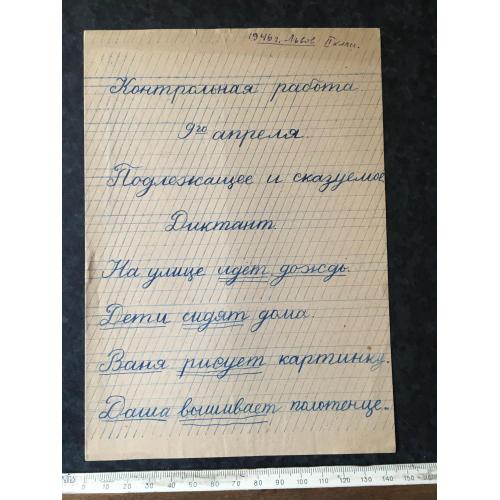 1946 г. Львов II клас.
Контрольная работа.
9го апреля.
Подлежащее и сказуемое
Диктант.
На улице идёт дождь.
Дети сидят дома.
Ваня рисует картинку.
Даша вышивает полотенце.
0 10 20 30 40 50 60 70 80 90 100 110 120 130 140 150 160